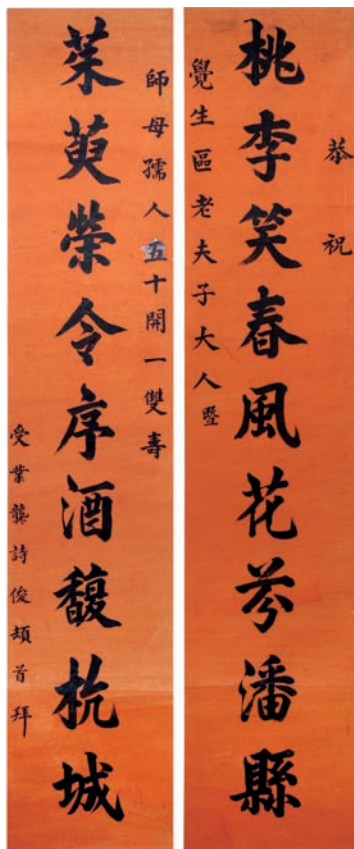 恭祝
桃李笑春風花芬潘縣
覺生區老夫子大人暨
師母孺人五十開一雙壽
茱萸榮令序酒馥杭城
受業龔詩俊頓首拜